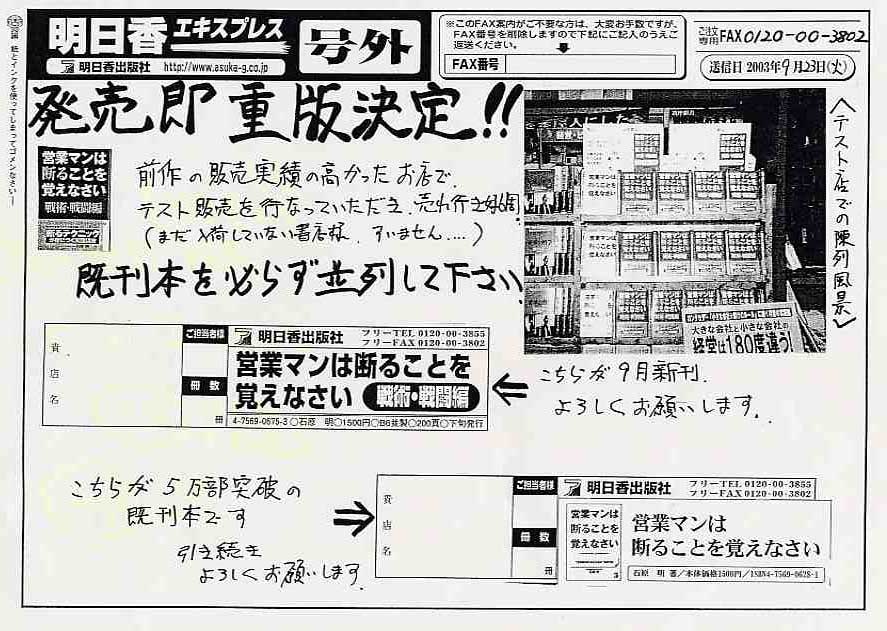 明日香エキスプレス
号外
明日香出版社 http://www.asuka-g.co.jp
※このFAX案内がご不要な方は、大変お手数ですが、
FAX番号を削除しますので下記にご記入のうえご
返送ください。
FAX番号
ご注文
専用FAX0120-00-3802
送信日 2003年9月23日(火)
紙とインクを使ってしまってゴメンなさい!
発売即重版決定!!
営業マンは
断ることを
覚えなさい
戦術・戦闘編
前作の販売実績の高かったお店で、
テスト販売を行なっていただき、売れ行き好調
(まだ入荷していない書店様、すいません....)
既刊本を必らず並列して下さい
<テスト店での陳列風景>
大きな会社と小さな会社の
経営は180度違う!
貴
店
名
ご担当者様
冊数
冊
明日香出版社
フリーTEL 0120-00-3855
フリーFAX 0120-00-3802
営業マンは断ることを
覚えなさい 戦術・戦闘編
4-7569-0675-3〇石原 明〇1500円〇B6並製〇200頁〇下旬発行
こちらが9月新刊.
よろしくお願いします.
こちらが5万部突破の
既刊本です
引き続き
よろしくお願いします
貴
店
名
ご担当者様
冊数
冊
明日香出版社
フリーTEL 0120-00-3855
フリーFAX 0120-00-3802
営業マンは
断ることを
覚えなさい
営業マンは
断ることを覚えなさい
石原 明 著/本体価格1500円/ISBN4-7569-0628-1